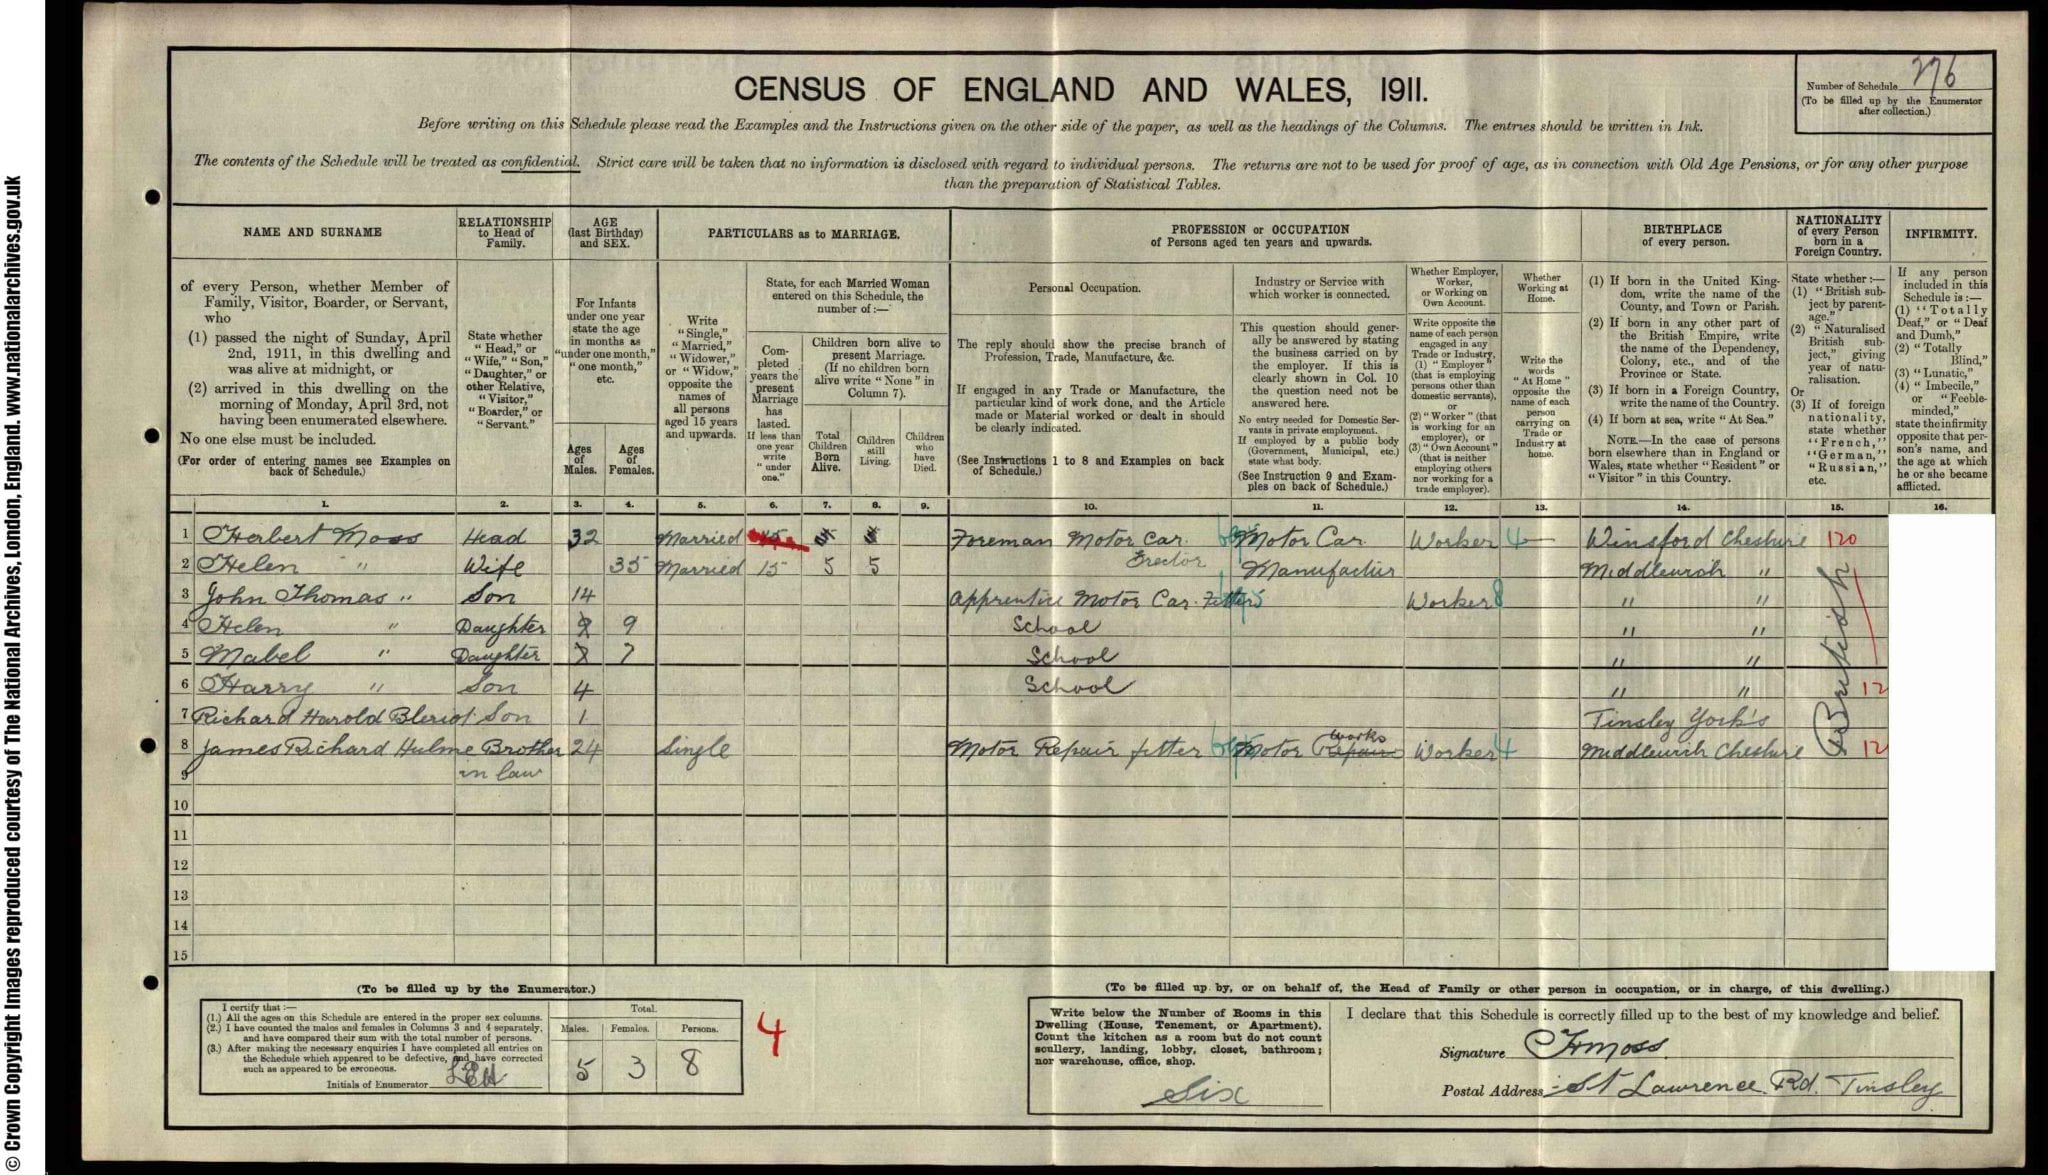 © Crown Copyright Images reproduced courtesy of The National Archives, London, England. www.nationalarchives.gov.uk
CENSUS OF ENGLAND AND WALES, 1911.
Number of Schedule 276
(To be filled up by the Enumerator
after collection.)
Before writing on this Schedule please read the Examples and the Instructions given on the other side of the paper, as well as the headings of the Columns. The entries should be written in Ink.
The contents of the Schedule will be treated as confidential. Strict care will be taken that no information is disclosed with regard to individual persons. The returns are not to be used for proof of age, as in connection with Old Age Pensions, or for any other purpose
than the preparation of Statistical Tables.
NAME AND SURNAME
of every Person, whether Member of
Family, Visitor, Boarder, or Servant,
who
(1) passed the night of Sunday, April
2nd, 1911, in this dwelling and
was alive at midnight, or
(2) arrived in this dwelling on the
morning of Monday, April 3rd, not
having been enumerated elsewhere.
No one else must be included.
(For order of entering names see Examples on
back of Schedule.)
RELATIONSHIP
to Head of
Family.
State whether
"Head," or
"Wife," "Son,"
"Daughter," or
other Relative,
"Visitor,"
"Boarder," or
"Servant."
AGE
(last Birthday)
and SEX.
For Infants
under one year
state the age
in months as
"under one month,"
"one month,"
etc.
Ages
of
Males.
Ages
of
Females.
PARTICULARS as to MARRIAGE.
Write
"Single,"
"Married,"
"Widower,"
or "Widow,"
opposite the
names of
all persons
aged 15 years
and upwards.
State, for each Married Woman
entered on this Schedule, the
number of:—
Com-
pleted
years the
present
Marriage
has
lasted.
If less than
one year
write
"under
one."
Children born alive to
present Marriage.
(If no children born
alive write "None" in
Column 7).
Total
Children
Born
Alive.
Children
still
Living.
Children
who
have
Died.
PROFESSION or OCCUPATION
of Persons aged ten years and upwards.
Personal Occupation.
The reply should show the precise branch of
Profession, Trade, Manufacture, &c.
If engaged in any Trade or Manufacture, the
particular kind of work done, and the Article
made or Material worked or dealt in should
be clearly indicated.
(See Instructions 1 to 8 and Examples on back
of Schedule.)
Industry or Service with
which worker is connected.
This question should gener-
ally be answered by stating
the business carried on by
the employer. If this is
clearly shown in Col. 10
the question need not be
answered here.
No entry needed for Domestic Ser-
vants in private employment.
If employed by a public body
(Government, Municipal, etc.)
state what body.
(See Instruction 9 and Exam-
ples on back of Schedule.)
Whether Employer,
Worker,
or Working on
Own Account.
Write opposite the
name of each person
engaged in any
Trade or Industry,
(1) "Employer"
(that is employing
persons other than
domestic servants),
or
(2) "Worker" (that
is working for an
employer), or
(3) "Own Account"
(that is neither
employing others
nor working for a
trade employer).
Whether
Working at
Home.
Write the
words
"At Home"
opposite the
name of each
person
carrying on
Trade or
Industry at
home.
BIRTHPLACE
of every person.
(1) If born in the United King-
dom, write the name of the
County, and Town or Parish.
(2) If born in any other part of
the British Empire, write
the name of the Dependency,
Colony, etc., and of the
Province or State.
(3) If born in a Foreign Country,
write the name of the Country.
(4) If born at sea, write "At Sea."
NOTE.—In the case of persons
born elsewhere than in England or
Wales, state whether "Resident" or
"Visitor" in this Country.
NATIONALITY
of every Person
born in a
Foreign Country.
State whether :—
(1) "British sub-
ject by parent-
age."
(2) "Naturalised
British sub-
ject," giving
year of natu-
ralisation.
Or
(3) If of foreign
nationality,
state whether
"French,"
"German,"
"Russian,"
etc.
INFIRMITY.
If any person
included in this
Schedule is :—
(1) "Totally
Deaf," or "Deaf
and Dumb,"
(2) "Totally
Blind,"
(3) "Lunatic,"
(4) "Imbecile,"
or "Feeble-
minded,"
state the infirmity
opposite that per-
son's name, and
the age at which
he or she became
afflicted.
1. 2. 3. 4. 5. 6. 7. 8. 9. 10. 11. 12. 13. 14. 15. 16.
1 Herbert Moss Head 32 Married Foreman Motor Car Motor Car Worker 4 — Winsford Cheshire 120
Erector
2 Helen " Wife 35 Married 15 5 5 Manufactur Middlewich "
3 John Thomas " Son 14 Apprentice Motor Car Fitter Worker 8 " "
4 Helen " Daughter 9 School " "
5 Mabel " Daughter 7 School " "
6 Harry " Son 4 School " " 12
7 Richard Harold Bleriot Son 1 Tinsley York's
British
8 James Richard Hulme Brother 24 Single Motor Repair fitter Motor Repair Works Worker 4 Middlewich Cheshire 12
9 in law
10
11
12
13
14
15
(To be filled up by the Enumerator.)
I certify that :—
(1.) All the ages on this Schedule are entered in the proper sex columns.
(2.) I have counted the males and females in Columns 3 and 4 separately,
and have compared their sum with the total number of persons.
(3.) After making the necessary enquiries I have completed all entries on
the Schedule which appeared to be defective, and have corrected
such as appeared to be erroneous.
Initials of Enumerator
Total.
Males. Females. Persons.
5 3 8
4
(To be filled up by, or on behalf of, the Head of Family or other person in occupation, or in charge, of this dwelling.)
Write below the Number of Rooms in this
Dwelling (House, Tenement, or Apartment).
Count the kitchen as a room but do not count
scullery, landing, lobby, closet, bathroom;
nor warehouse, office, shop.
Six
I declare that this Schedule is correctly filled up to the best of my knowledge and belief.
Signature H Moss
Postal Address St Lawrence Rd. Tinsley